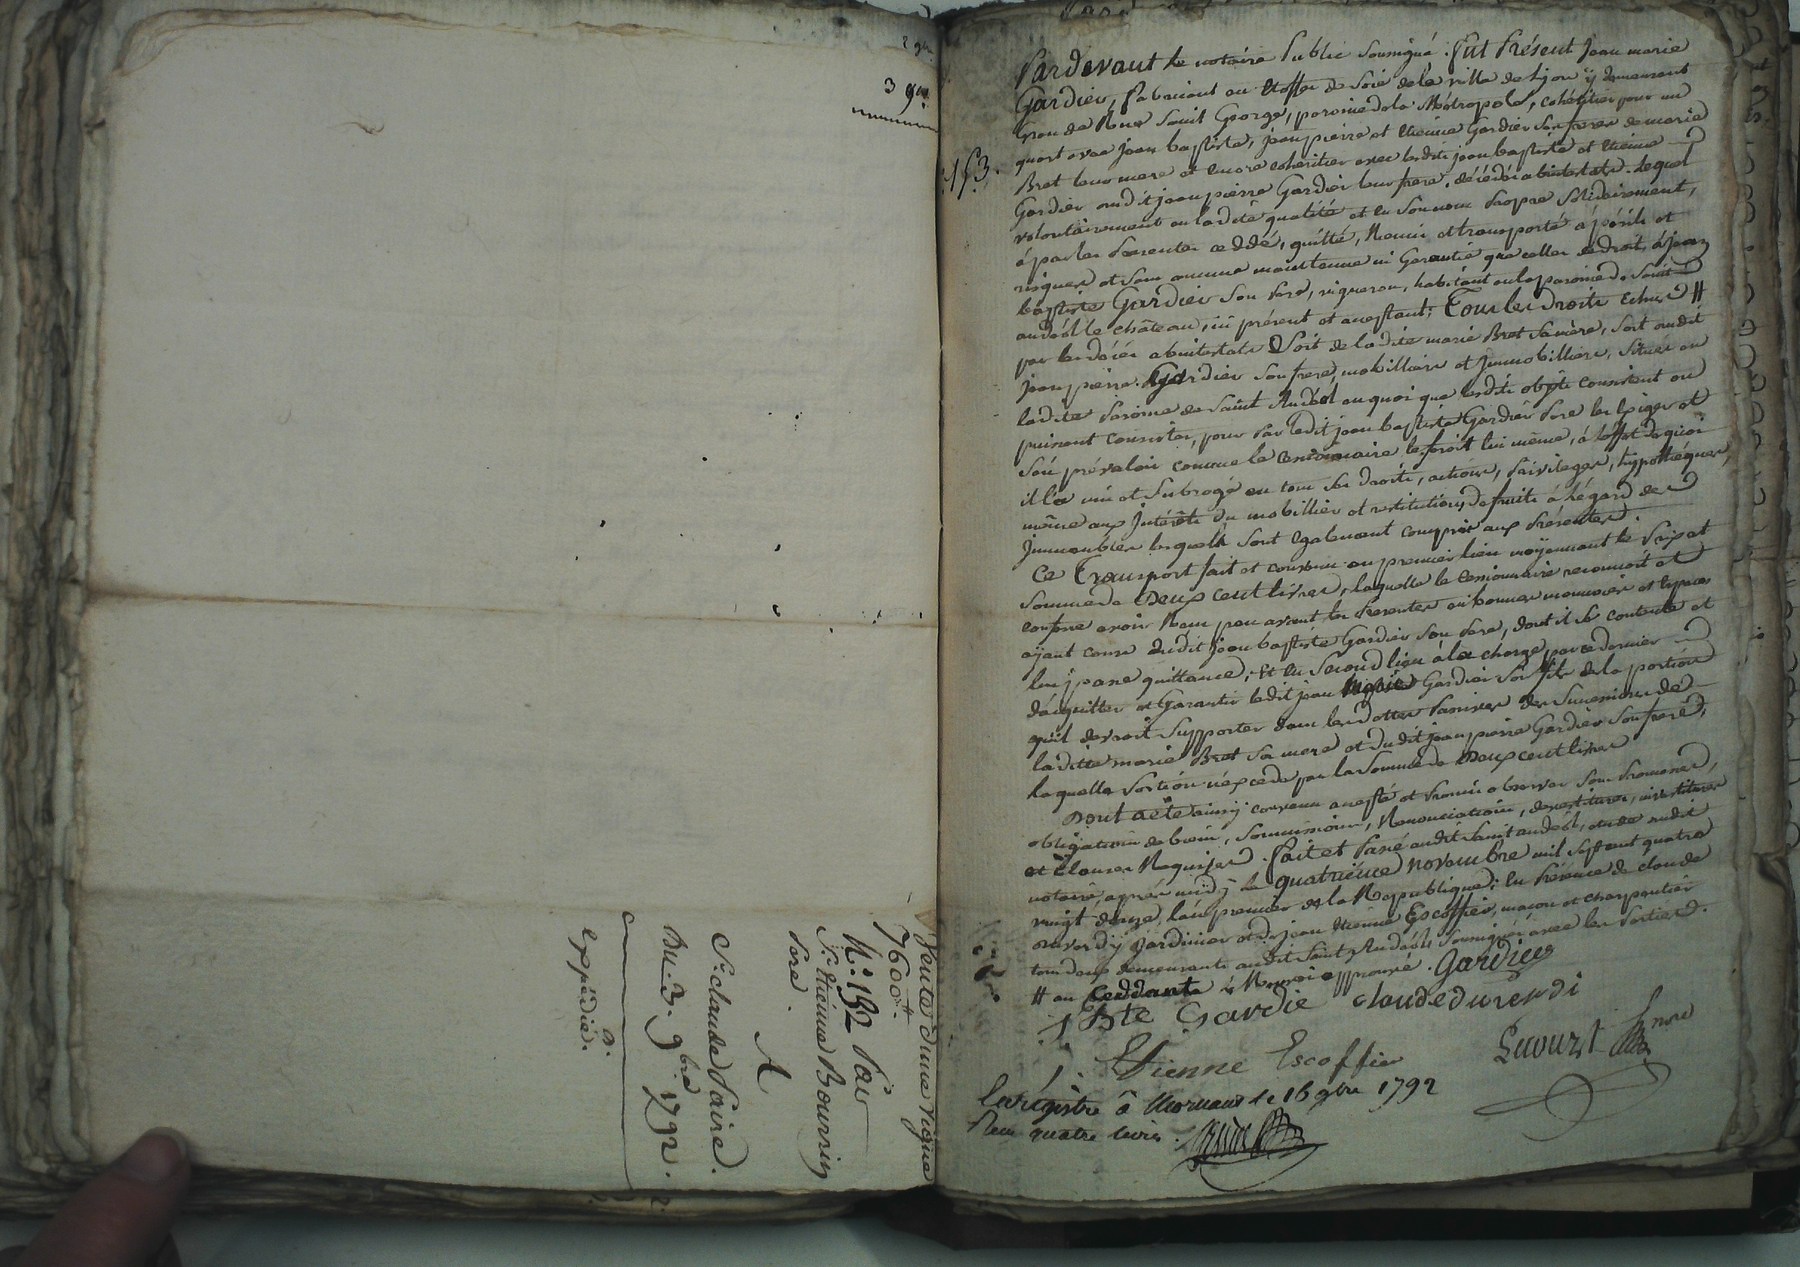 2 9bre
3 9bre
Vente d'une vigne
7600 ₶
N.° 152 Par
S.r Etienne Boursin
Pere.
A
S.r claude Paire.
Du. 3. 9bre 1792.
expédié.
153.
Pardevant le notaire Public soussigné. fut Présent jean marie
Gardier, fabricant en Etoffes de soie de la ville de Lyon ÿ demeurant
Grande Rue Saint George, paroisse de la Métropole, cohéritier pour un
quart avec jean baptiste, jean pierre et Etienne Gardier ses freres de marie
Bret leur mere et encore coheritier avec lesdits jean baptiste et Etienne
Gardier audit jean pierre Gardier leur frere, décédés abintestats. Lequel
volontairement en ladite qualité et en son nom Propre Solidairement,
a par les Presentes ceddé, quitté, Remis et transporté a périls et
risques et sans aucune maintenue ni Garantie que celles de droit, à jean
baptiste Gardier son Pere, vigneron, habitant en la paroisse de Saint
andéol le château, ici présent et aceptant; Tous les Droits echus #
par les décés abintestats Soit de ladite marie Bret sa mère, soit audit
jean pierre Gardier son frere, mobilliers et Immobilliers, situés en
ladite Paroisse de Saint Andéol en quoi que lesdits objets consistent ou
puissent consister, pour Par ledit jean baptiste Gardier Pere les Exiger et
s'en prévaloir comme le cessionnaire le feroit lui même, à l'effet de quoi
il l'a mis et subrogé en tous ses droits, actions, Privileges, hypothéques,
même aux Intérêts du mobillier et restitutions de fruits à l'égard des
Immeubles lesquels sont egalement compris aux Présentes.
Ce Transport fait et convenu en premier lieu moyennant le Prix et
somme de Deux cent livres, laquelle le cessionnaire reconnoit et
confesse avoir Reçu peu avant les Presentes en bonnes monnoies et Especes
aÿant cours dudit jean baptiste Gardier son Pere, dont il se contente et
lui ÿ passe quittance; Et en Second lieu à la charge par ce dernier
d'acquitter et Garantir ledit jean marie Gardier son fils de la portion
qu'il devroit Supporter dans les dettes Passives des Successions de
ladite marie Bret sa mere et dudit jean pierre Gardier son frere,
laquelle Portion n'excede pas la Somme de Deux cent livres
Dont acte ainsÿ convenu acepté et Promis observer sous Promesses,
obligations de biens, soumissions, Renonciations, devestitures, investitures
et clauses Requises. Fait et Passé audit Saint andéol, etude dudit
notaire, aprés midÿ le quatrième novembre mil sept cent quatre
vingt douze, l'an premier de la République; En Présence de claude
jardinier et de jean Etienne Escoffier, maçon et charpentier
tous deux demeurants audit Saint Andéol Soussignés avec les Parties.
# au Ceddant à Renvoi approuvé. Gardier
J Bte Gardie claude durendi
Etienne Escoffier Lecourt nre
Enrégistré â Mornant le 16 9bre 1792
Reçu quatre livres.